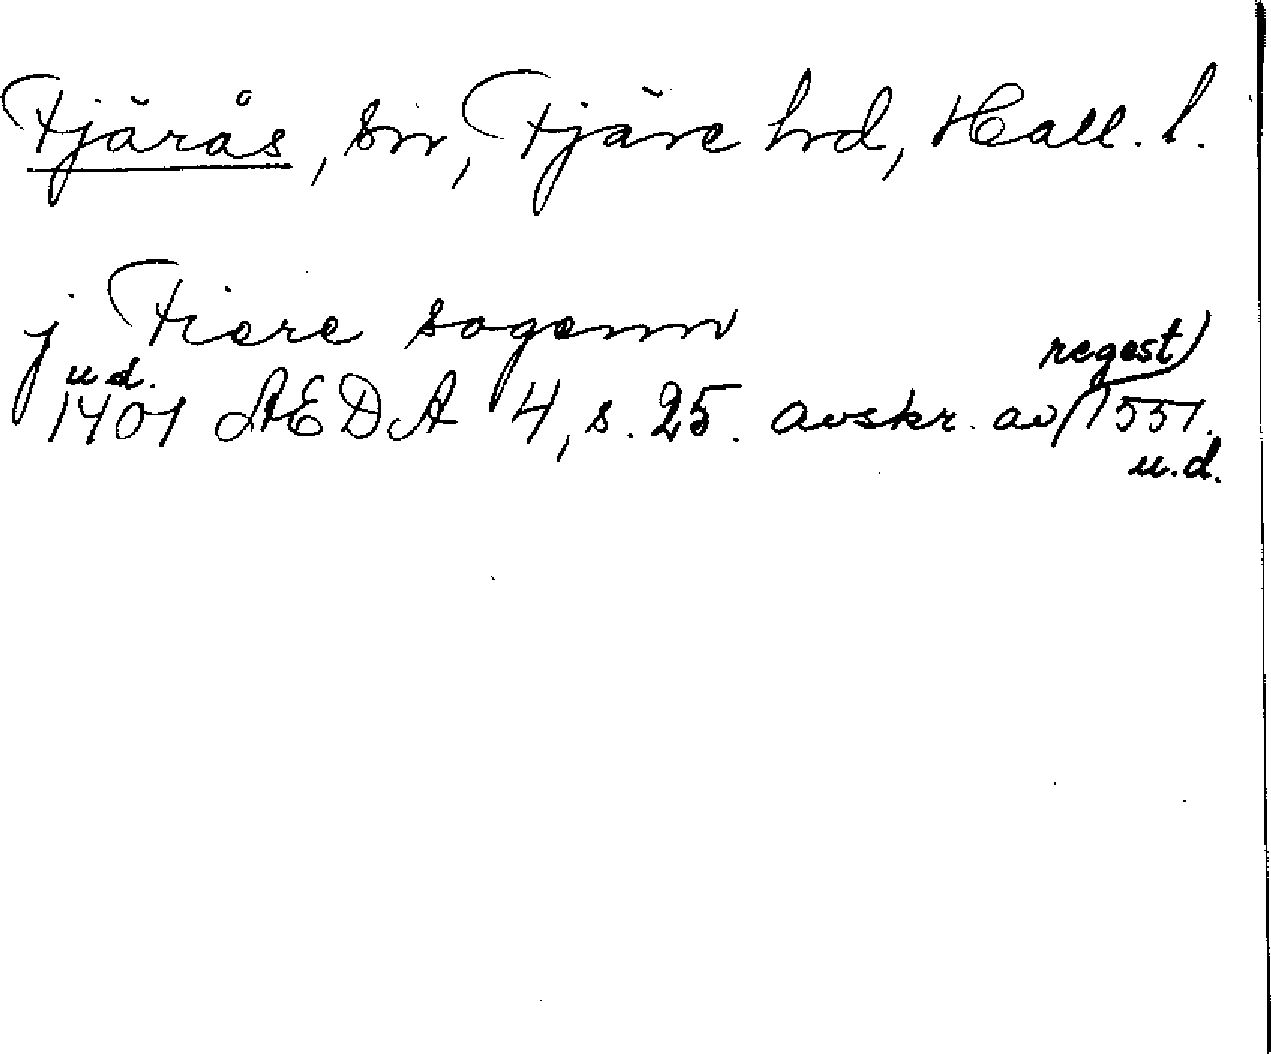 Fjärås, sn, Fjäre hd, Hall. l.
j Fiere sogenn
u.d. regest)
1401 ÆDA 4, s. 25. avskr. av (1551.
u.d.